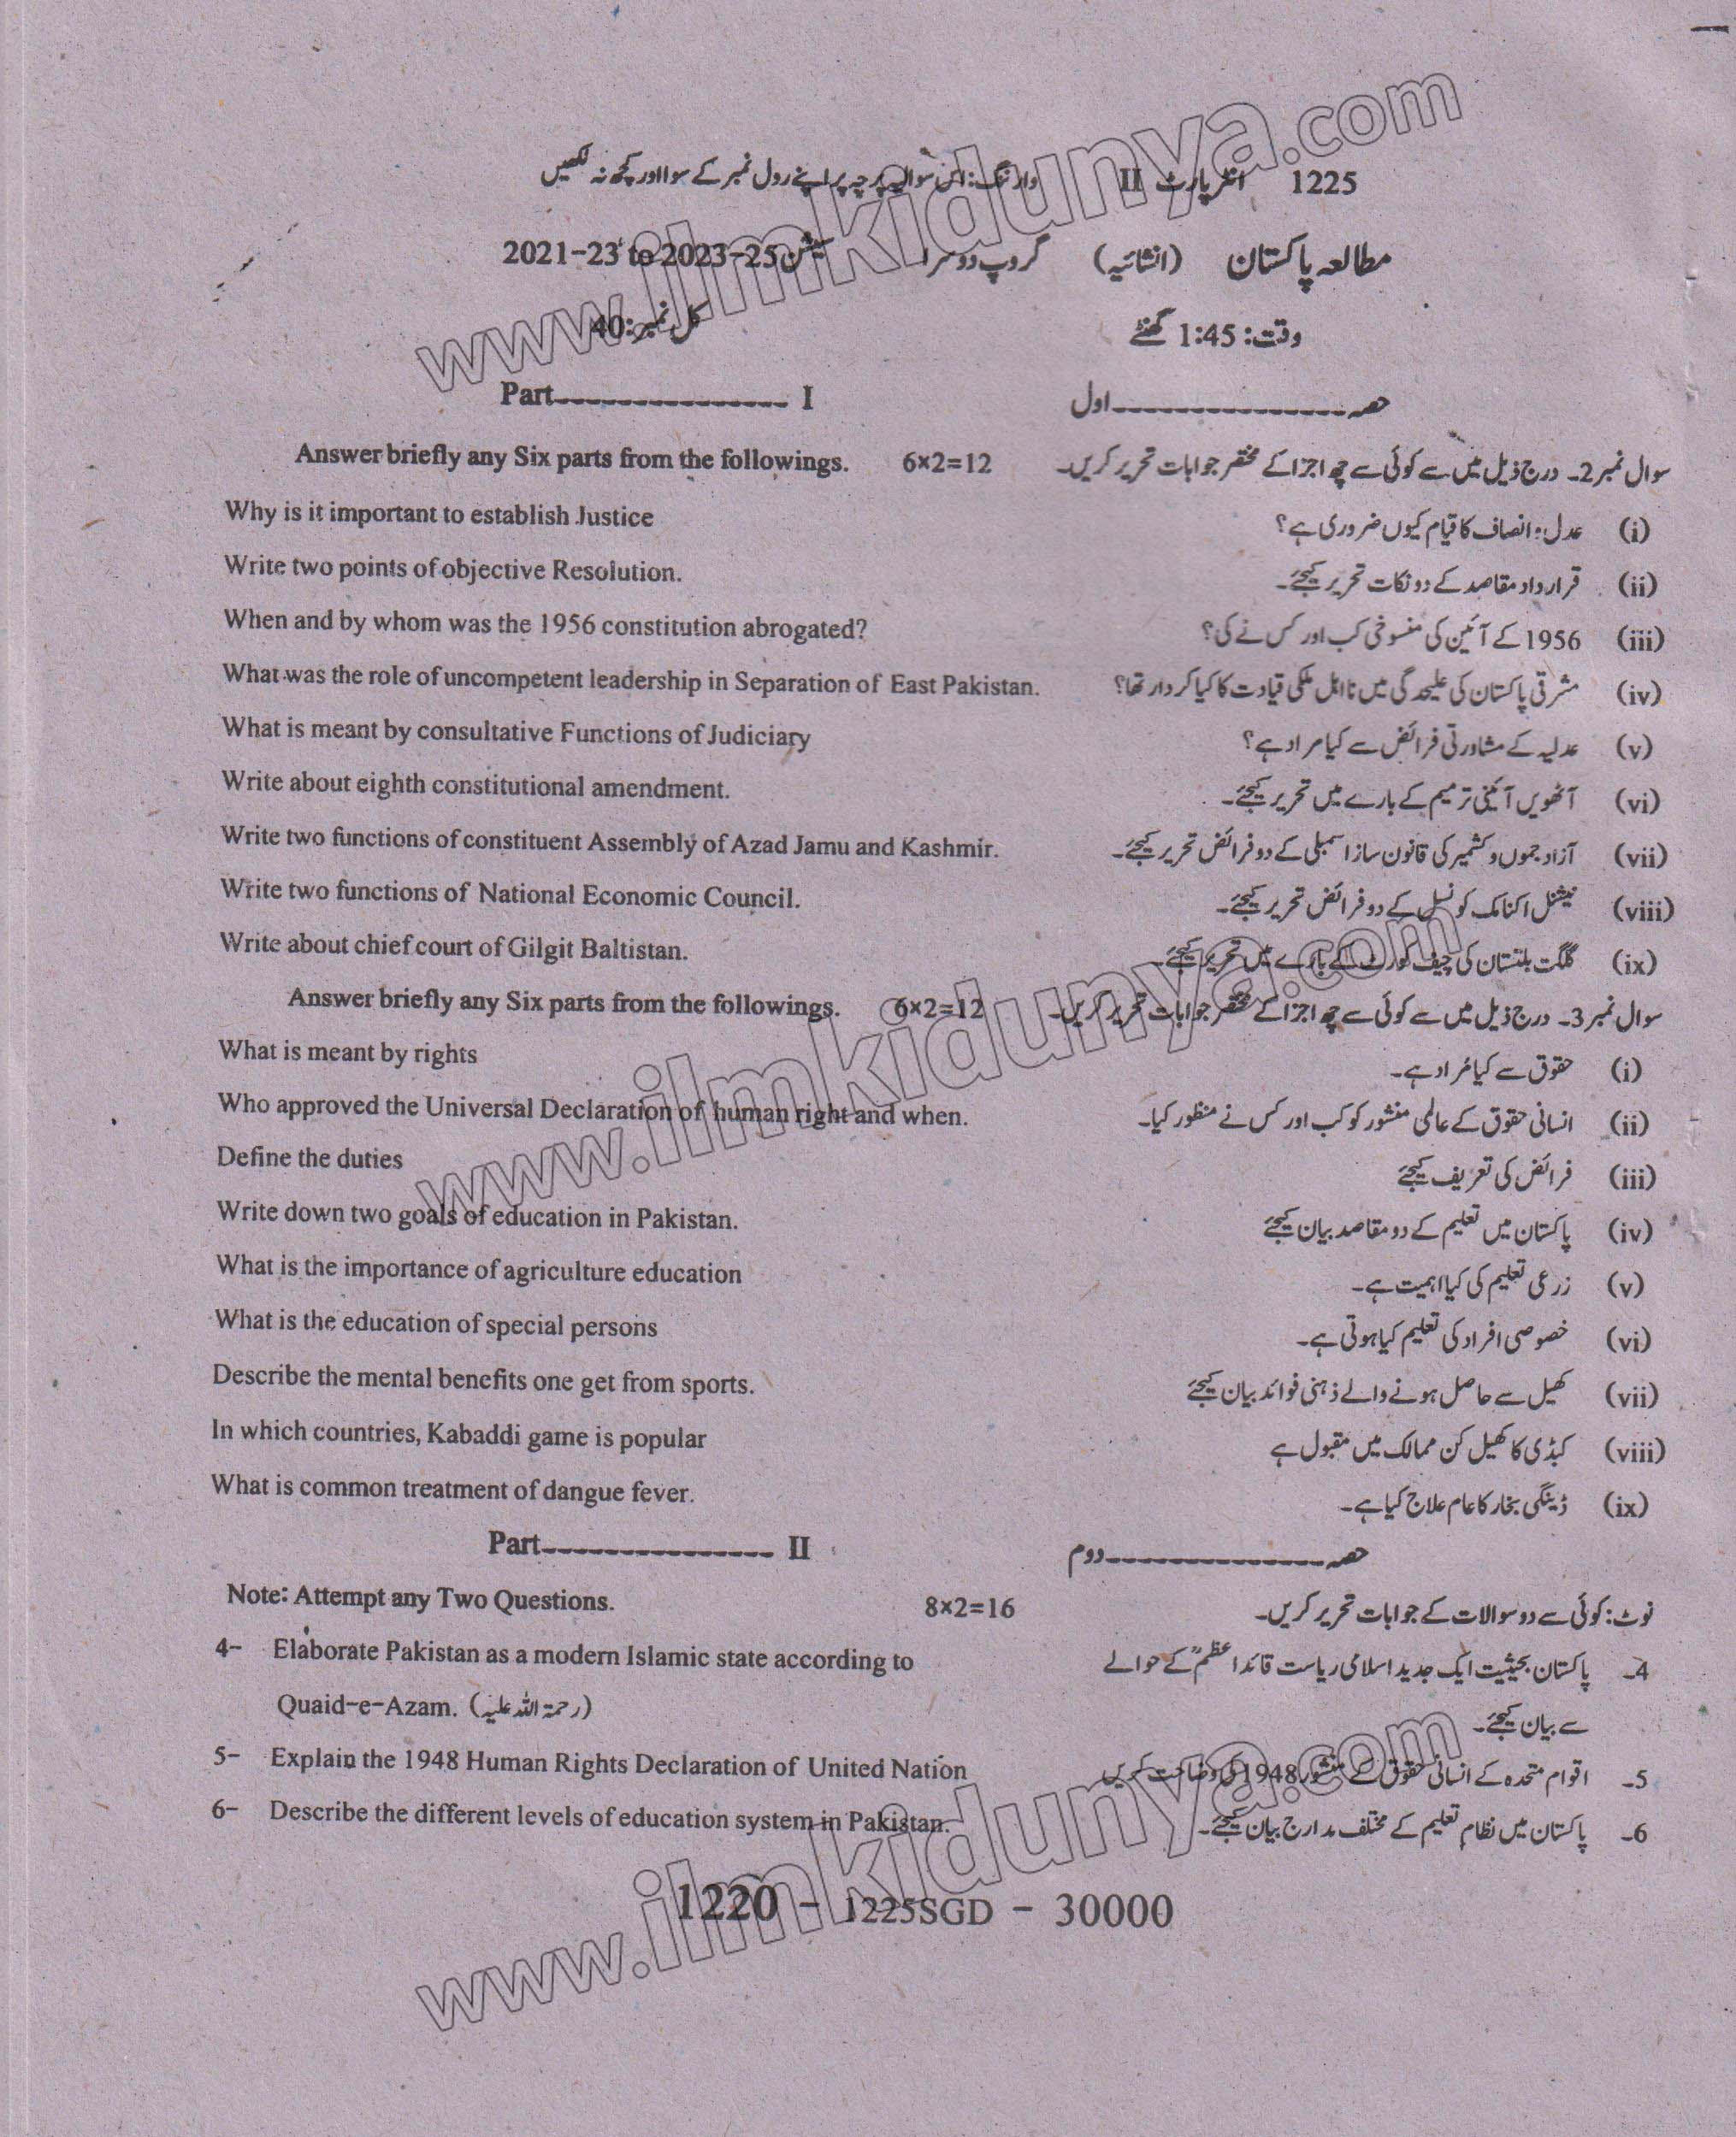 1225 انٹر پارٹ II وارننگ: اس سوالیہ پرچہ پر اپنے رول نمبر کے سوا اور کچھ نہ لکھیں
مطالعہ پاکستان (انشائیہ) گروپ دوسرا سیشن 2021-23 to 2023-25
وقت: 1:45 گھنٹے کل نمبر: 40
Part---------------- I حصہ----------------اول
Answer briefly any Six parts from the followings. 6×2=12 سوال نمبر 2۔ درج ذیل میں سے کوئی سے چھ اجزا کے مختصر جوابات تحریر کریں۔
Why is it important to establish Justice (i) عدل و انصاف کا قیام کیوں ضروری ہے؟
Write two points of objective Resolution. (ii) قرارداد مقاصد کے دو نکات تحریر کیجئے۔
When and by whom was the 1956 constitution abrogated? (iii) 1956 کے آئین کی منسوخی کب اور کس نے کی؟
What was the role of uncompetent leadership in Separation of East Pakistan. (iv) مشرقی پاکستان کی علیحدگی میں نااہل ملکی قیادت کا کیا کردار تھا؟
What is meant by consultative Functions of Judiciary (v) عدلیہ کے مشاورتی فرائض سے کیا مراد ہے؟
Write about eighth constitutional amendment. (vi) آٹھویں آئینی ترمیم کے بارے میں تحریر کیجئے۔
Write two functions of constituent Assembly of Azad Jamu and Kashmir. (vii) آزاد جموں و کشمیر کی قانون ساز اسمبلی کے دو فرائض تحریر کیجئے۔
Write two functions of National Economic Council. (viii) نیشنل اکنامک کونسل کے دو فرائض تحریر کیجئے۔
Write about chief court of Gilgit Baltistan. (ix) گلگت بلتستان کی چیف کورٹ کے بارے میں تحریر کیجئے۔
Answer briefly any Six parts from the followings. 6×2=12 سوال نمبر 3۔ درج ذیل میں سے کوئی سے چھ اجزا کے مختصر جوابات تحریر کریں۔
What is meant by rights (i) حقوق سے کیا مُراد ہے۔
Who approved the Universal Declaration of human right and when. (ii) انسانی حقوق کے عالمی منشور کو کب اور کس نے منظور کیا۔
Define the duties (iii) فرائض کی تعریف کیجئے
Write down two goals of education in Pakistan. (iv) پاکستان میں تعلیم کے دو مقاصد بیان کیجئے
What is the importance of agriculture education (v) زرعی تعلیم کی کیا اہمیت ہے۔
What is the education of special persons (vi) خصوصی افراد کی تعلیم کیا ہوتی ہے۔
Describe the mental benefits one get from sports. (vii) کھیل سے حاصل ہونے والے ذہنی فوائد بیان کیجئے
In which countries, Kabaddi game is popular (viii) کبڈی کا کھیل کن ممالک میں مقبول ہے
What is common treatment of dangue fever. (ix) ڈینگی بخار کا عام علاج کیا ہے۔
Part---------------- II حصہ----------------دوم
Note: Attempt any Two Questions. 8×2=16 نوٹ: کوئی سے دو سوالات کے جوابات تحریر کریں۔
4- Elaborate Pakistan as a modern Islamic state according to 4۔ پاکستان بحیثیت ایک جدید اسلامی ریاست قائداعظمؒ کے حوالے
Quaid-e-Azam. (رحمۃ اللہ علیہ) سے بیان کیجئے۔
5- Explain the 1948 Human Rights Declaration of United Nation 5۔ اقوام متحدہ کے انسانی حقوق کے منشور 1948 کی وضاحت کریں
6- Describe the different levels of education system in Pakistan. 6۔ پاکستان میں نظام تعلیم کے مختلف مدارج بیان کیجئے۔
1220 - 1225SGD - 30000
www.ilmkidunya.com
www.ilmkidunya.com
www.ilmkidunya.com